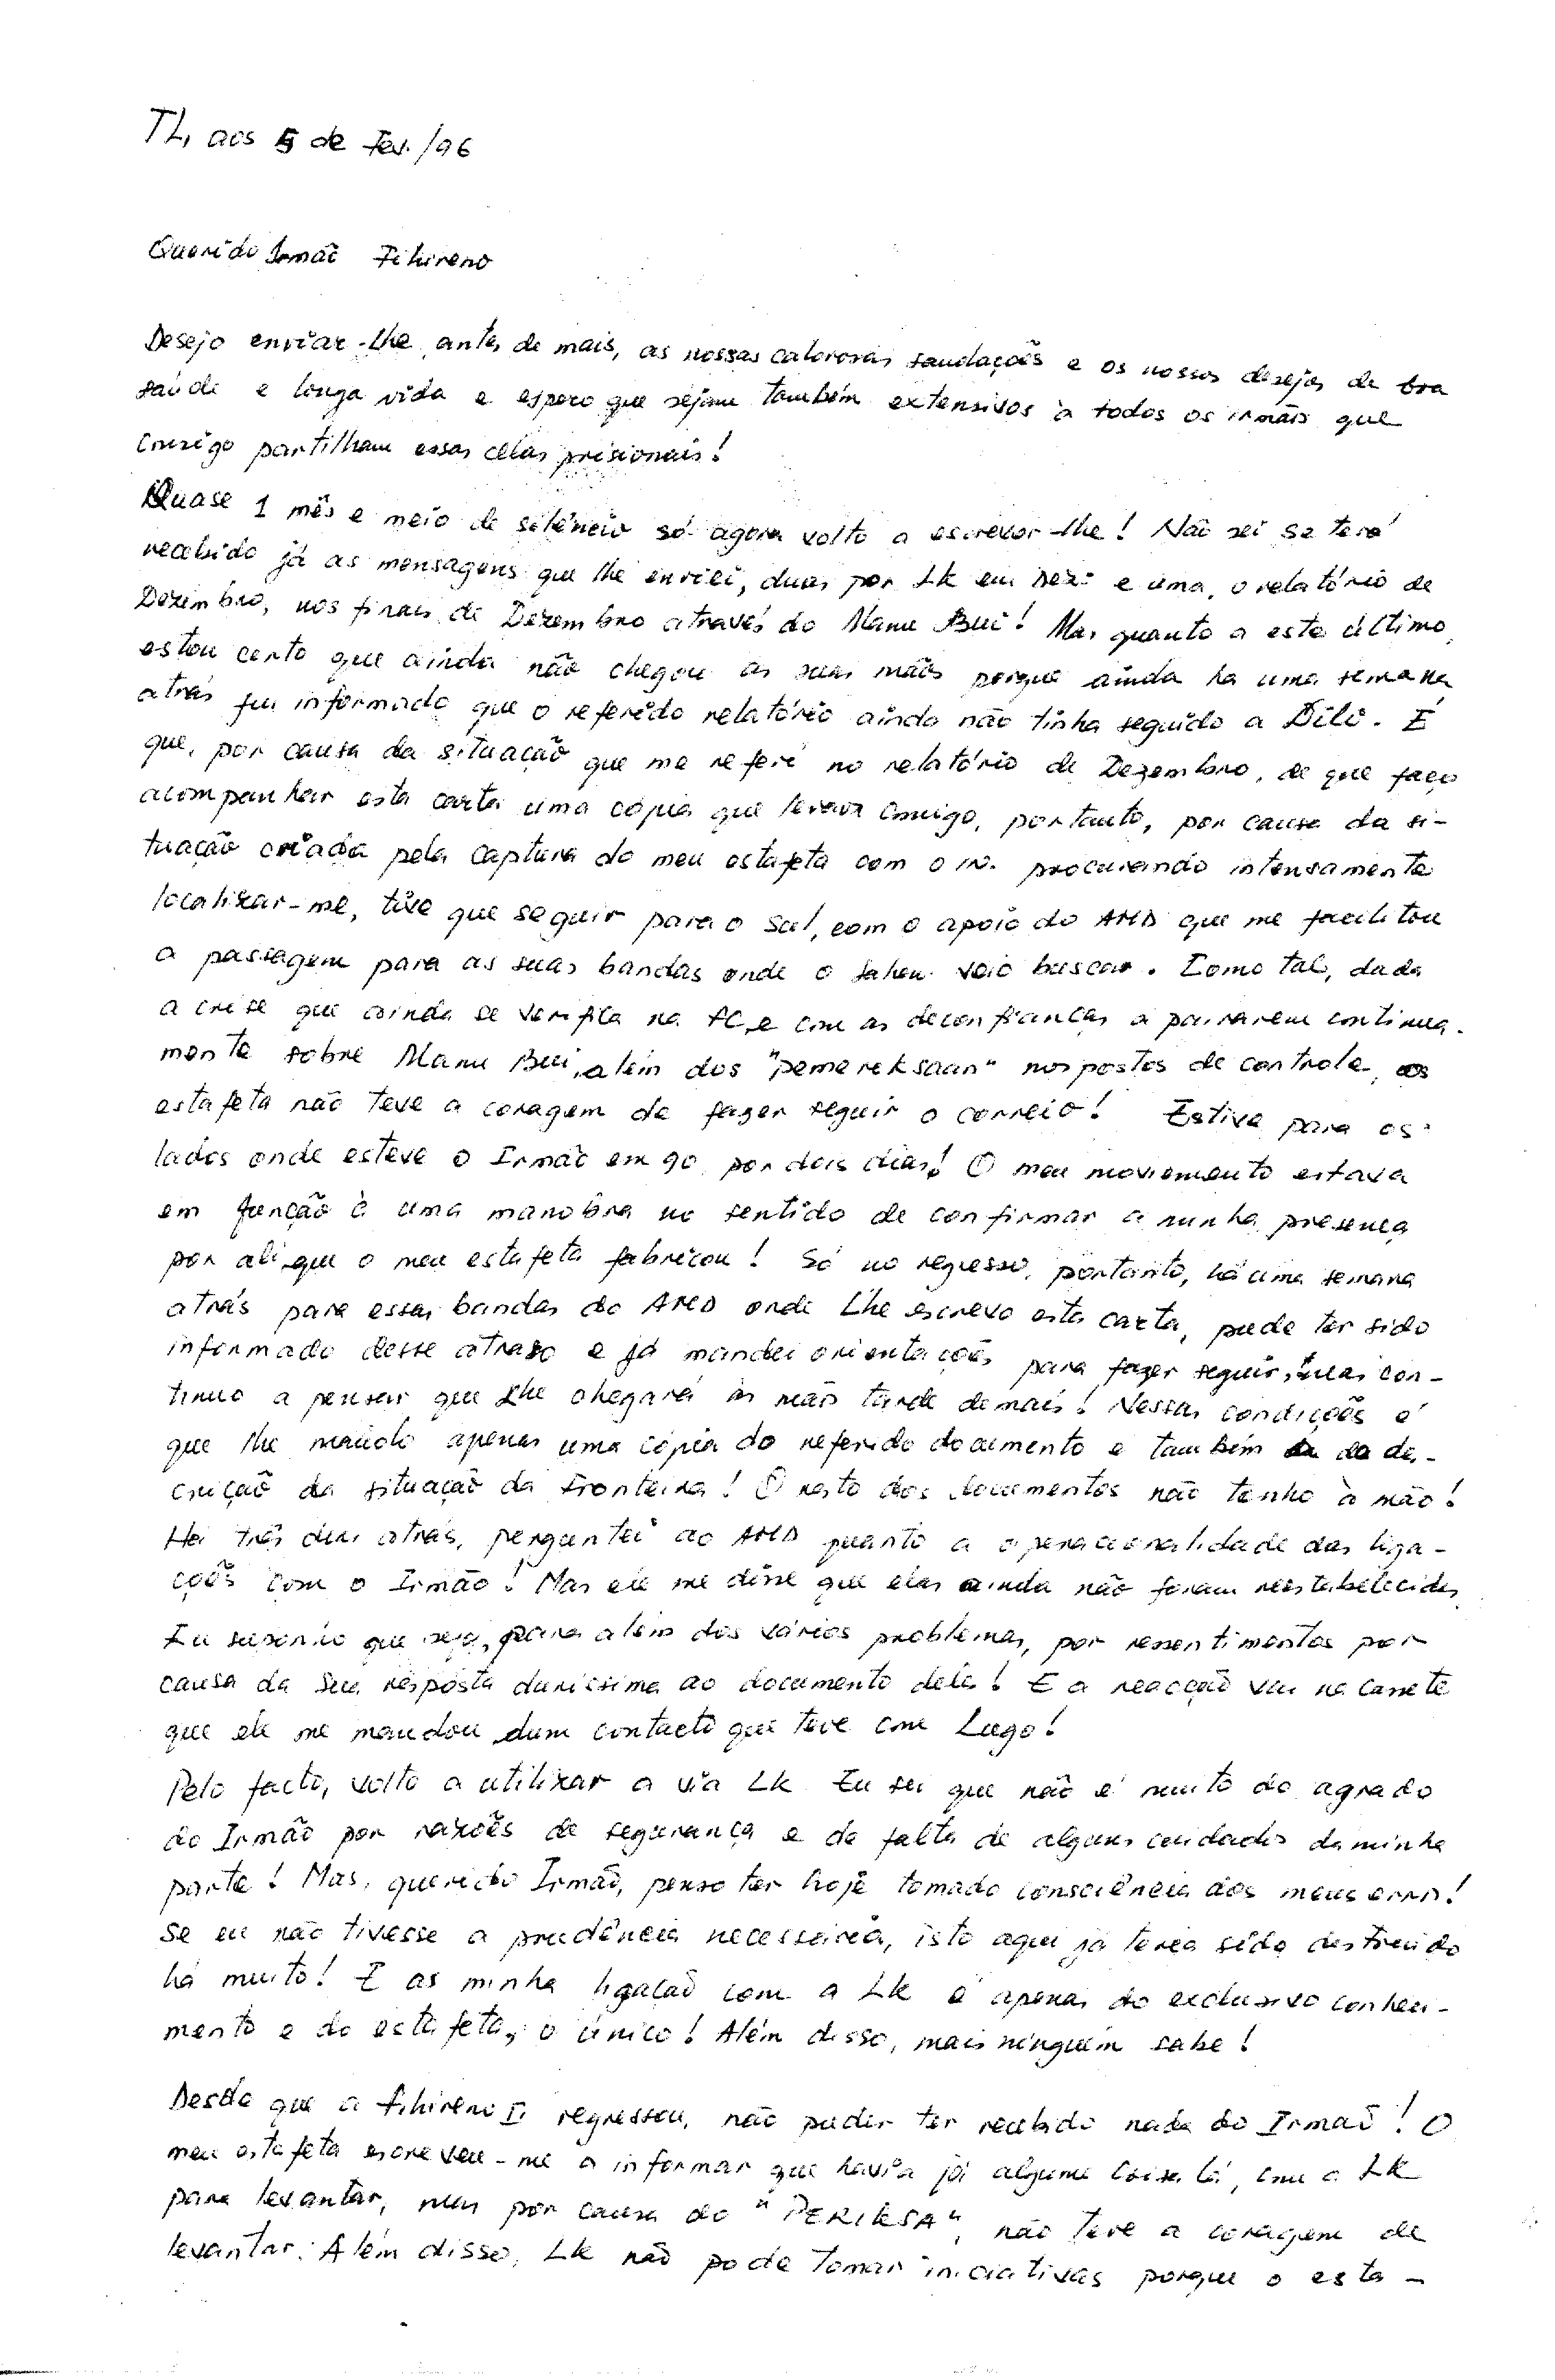 TL, aos 5 de Fev./96
Querido Irmão Fihireno
Desejo enviar-lhe, antes de mais, as nossas calorosas saudações e os nossos desejos de boa
saúde e longa vida e espero que sejam também extensivos à todos os irmãos que
consigo partilham essas celas prisionais!
Quase 1 mês e meio de silêncio só agora volto a escrever-lhe! Não sei se terá
recebido já as mensagens que lhe enviei, duas por LK em Dez: e uma, o relatório de
Dezembro, nos finais de Dezembro através do Manu Bui! Mas quanto a este último,
estou certo que ainda não chegou as suas mãos porque ainda ha uma semana
atrás fui informado que o referido relatório ainda não tinha seguido a Dili. É
que, por causa da situação que me referi no relatório de Dezembro, de que faço
acompanhar esta carta uma cópia que levava comigo, portanto, por causa da si-
tuação criada pela captura do meu estafeta com o in. procurando intensamente
localizar-me, tive que seguir para o Sul, com o apoio do AMD que me facilitou
a passagem para as suas bandas onde o veio buscar. Como tal, dada
a crise que ainda se verifica na FC, e com as deconfianças a pairarem continua-
mente sobre Manu Bui, além dos "pemereksaan" nos postos de controle, os
estafeta não teve a coragem de fazer seguir o correio! Estive para os
lados onde esteve o Irmão em 90, por dois dias! O meu moviemento estava
em função à uma manobra no sentido de confirmar a minha presença
por ali que o meu estafeta fabricou! Só no regresso, portanto, há uma semana
atrás para essas bandas do AMD onde lhe escrevo esta carta, pude ter sido
informado desse atraso e já mandei orientações para fazer seguir, mas con-
tinuo a pensar que lhe chegará às mãos tarde demais! Nessas condições é
que lhe mando apenas uma cópia do referido documento e também da des-
crição da situação da fronteira! O resto dos documentos não tenho à mão!
Há três dias atrás, perguntei ao AMD quanto a operacionalidade das liga-
ções com o Irmão! Mas ele me disse que elas ainda não foram reestabelecidas.
Eu suponho que seja, para além dos vários problemas, por ressentimentos por
causa da sua resposta duríssima ao documento dele! E a reacção vai na cassete
que ele me mandou, dum contacto que teve com Lugo!
Pelo facto, volto a utilizar a via LK. Eu sei que não é muito do agrado
do Irmão por razões de segurança e de falta de alguns cuidados da minha
parte! Mas, querido Irmão, penso ter hoje tomado consciência dos meus erros!
Se eu não tivesse a prudência necessária, isto aqui já teria sido destruido
há muito! E as minha ligação com a LK é apenas do exclusivo conheci-
mento e do estafeta, o único! Além disso, mais ninguém sabe!
Desde que a Fihireno II regressou, não puder ter recebido nada do Irmão! O
meu estafeta escreveu-me a informar que havia já alguma coisa lá, com a LK
para levantar, mas por causa do "PERIKSA", não teve a coragem de
levantar. Além disso, LK não pode tomar iniciativas porque o esta-